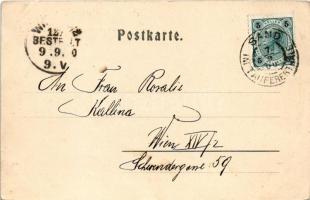 Postkarte.
BESTELLT
9.9.0
9.V.
SAND
IM TAUFERERTAL
An Frau Rosalie
Kallina
Wien XIV/2
Schwendergasse 59